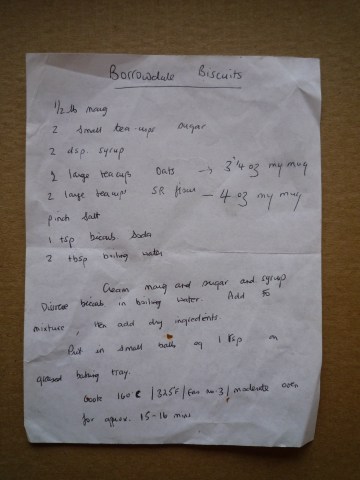 Borrowdale Biscuits
1/2 lb marg
2 small tea-cups sugar
2 dsp. syrup
2 large teacups Oats → 3 3/4 oz my mug
2 large teacups SR flour — 4 oz my mug
pinch salt
1 tsp bicarb. soda
2 tbsp boiling water
Cream marg and sugar and syrup
Dissolve bicarb in boiling water. Add to
mixture, then add dry ingredients.
Put in small balls of 1 tsp on
greased baking tray.
160°C / 325°F / no. 3 / moderate oven
for approx. 15-16 mins